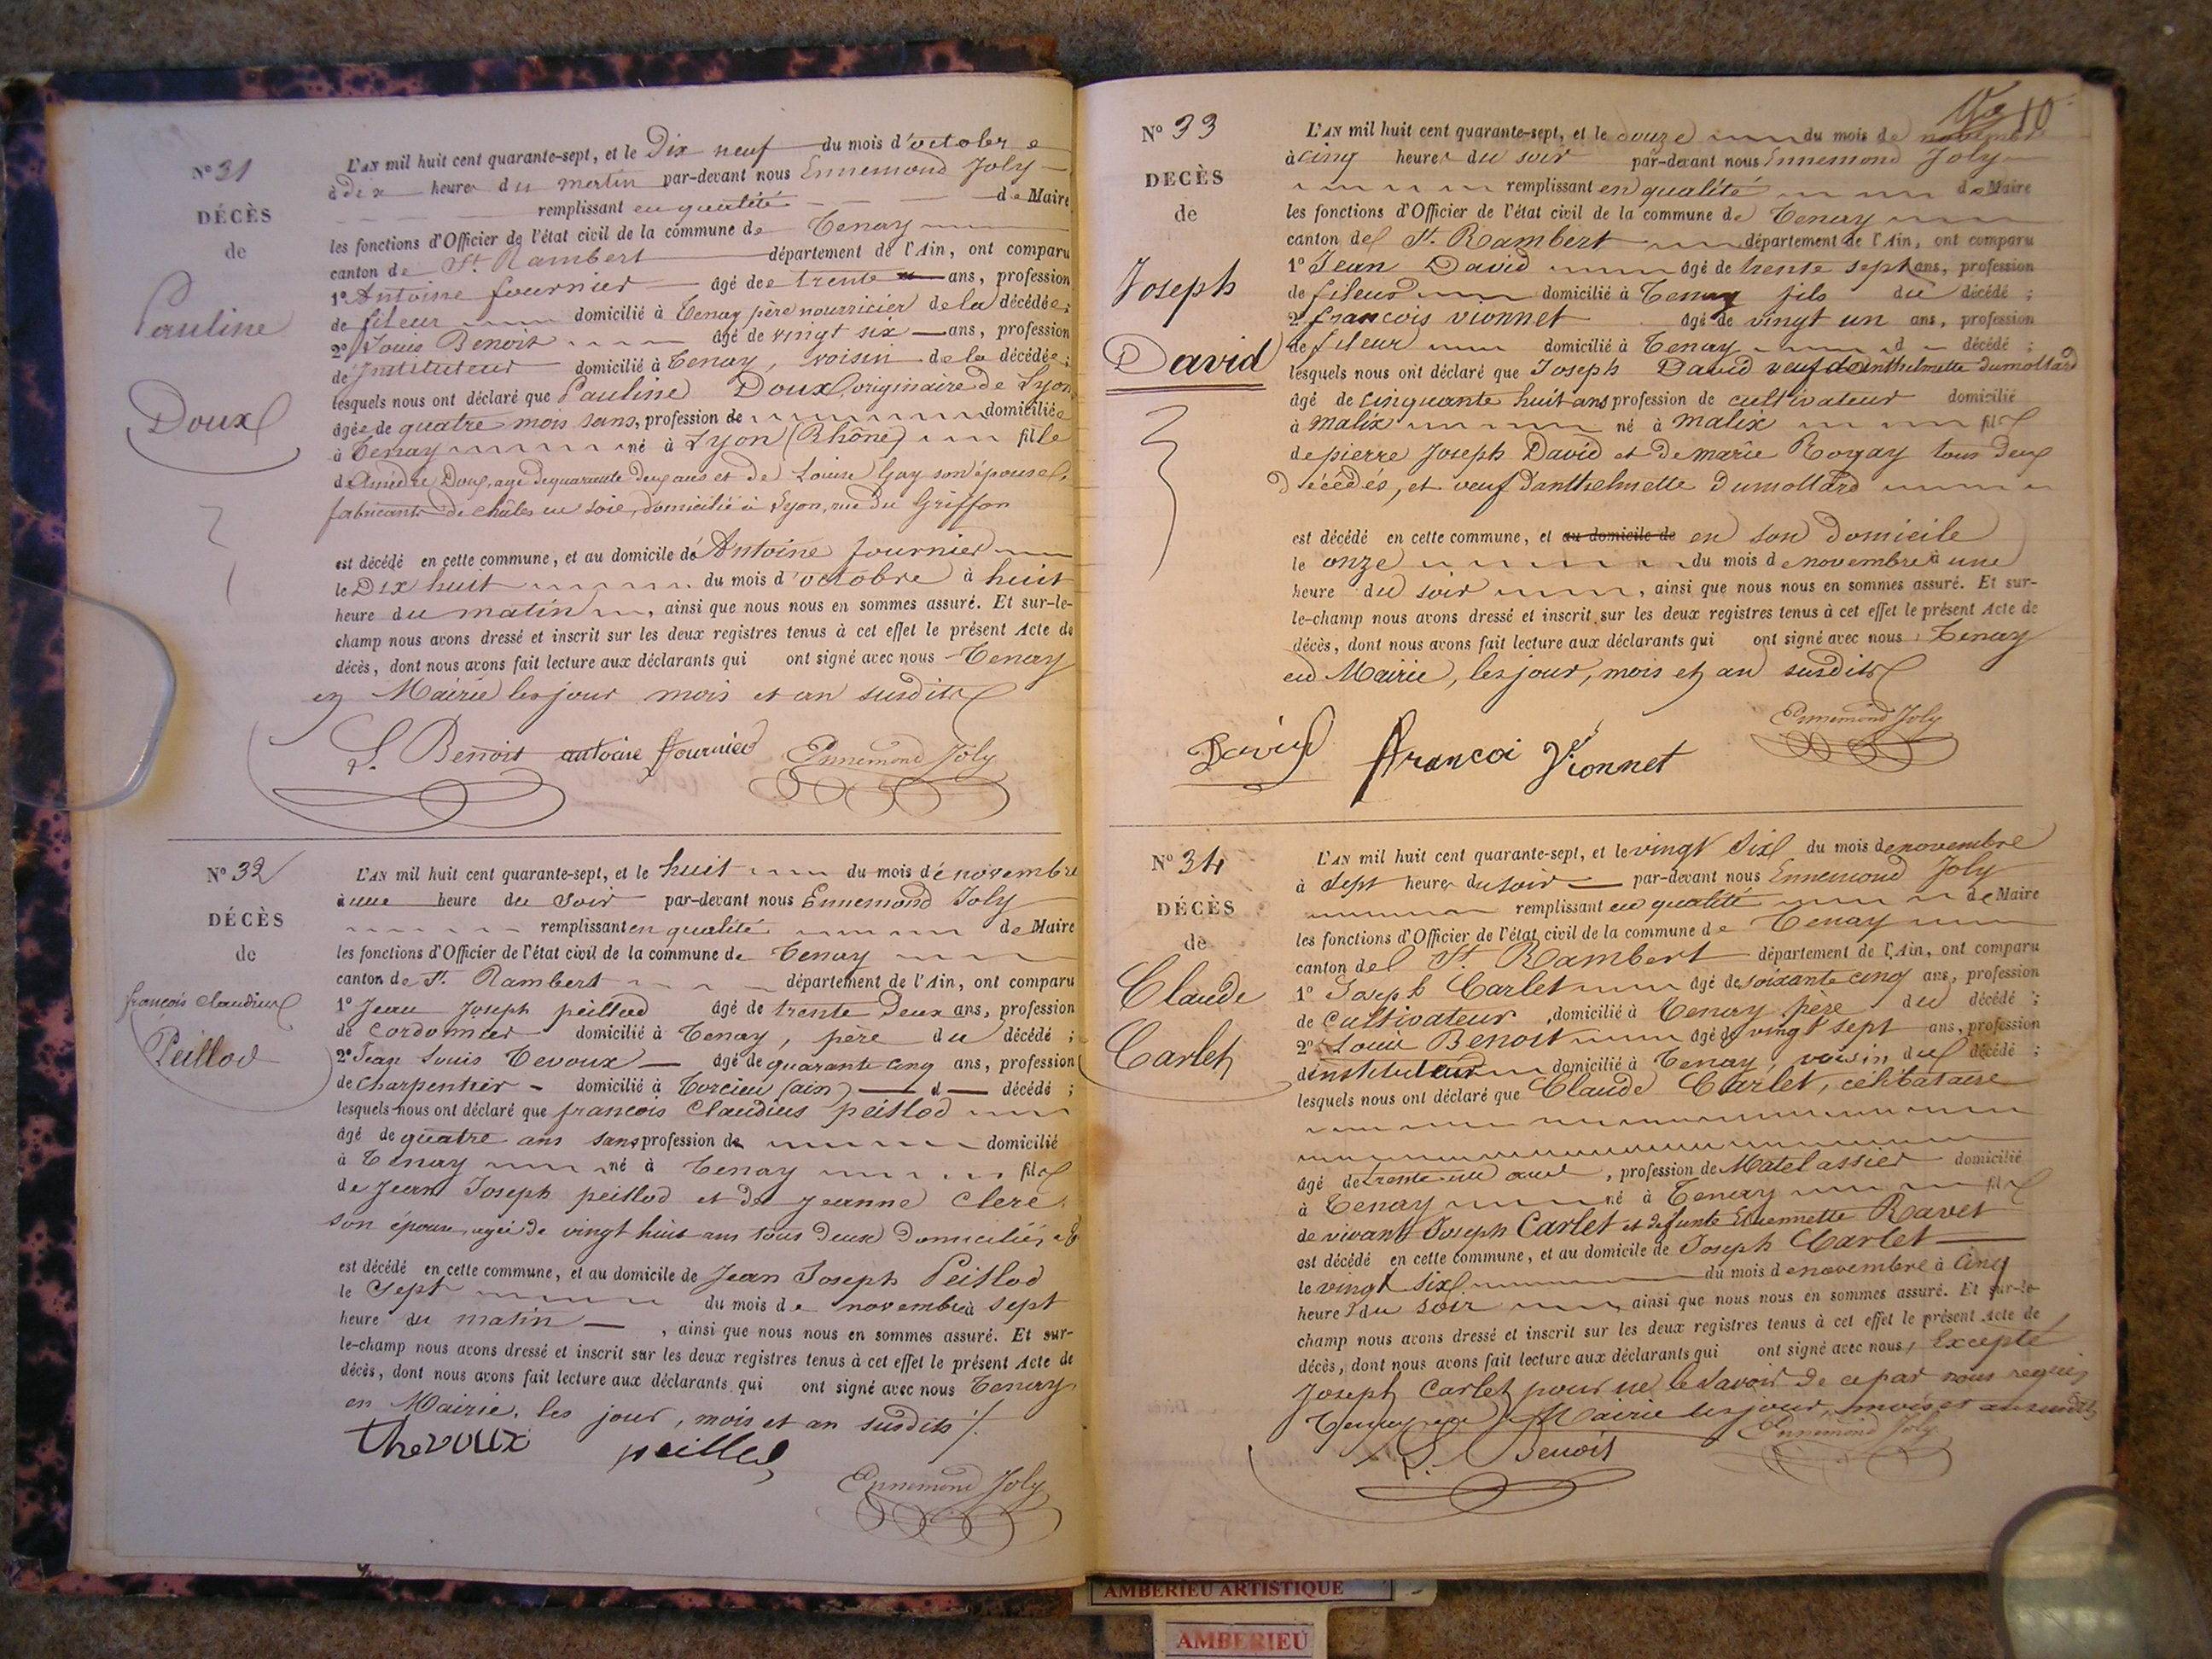 N° 31
DÉCÈS
de
Pauline
Doux
L'AN mil huit cent quarante-sept, et le Dix neuf du mois d'octobre
à dix heures du matin par-devant nous Ennemond Joly
remplissant en qualité de Maire
les fonctions d'Officier de l'état civil de la commune de Tenay
canton de St. Rambert département de l'Ain, ont comparu
1° Antoine fournier âgé de trente ans, profession
de fileur domicilié à Tenay père nourricier de la décédée;
2° Louis Benoit âgé de vingt six ans, profession
de Instituteur domicilié à Tenay, voisin de la décédée;
lesquels nous ont déclaré que Pauline Doux, originaire de Lyon
âgée de quatre mois sans profession de domiciliée
à Tenay né à Lyon (Rhône) fille
d'Amédée Doux, agé de quarante deux ans et de Louise Gay son épouse,
fabricants de châles en soie, domicilié à Lyon, rue du Griffon
est décédé en cette commune, et au domicile de Antoine fournier
le Dix huit du mois d'octobre à huit
heure du matin, ainsi que nous nous en sommes assuré. Et sur-le-
champ nous avons dressé et inscrit sur les deux registres tenus à cet effet le présent Acte de
décès, dont nous avons fait lecture aux déclarants qui ont signé avec nous Tenay
en Mairie les jour mois et an susdits
L. Benoit antoine fournier Ennemond Joly
N° 32
DÉCÈS
de
françois claudius
Peillod
L'AN mil huit cent quarante-sept, et le huit du mois de novembre
à une heure du soir par-devant nous Ennemond Joly
remplissant en qualité de Maire
les fonctions d'Officier de l'état civil de la commune de Tenay
canton de St. Rambert département de l'Ain, ont comparu
1° Jean Joseph peillod âgé de trente Deux ans, profession
de cordonnier domicilié à Tenay, père du décédé;
2° Jean Louis Tevoux âgé de quarante cinq ans, profession
de charpentier domicilié à Torcieu (ain) d décédé;
lesquels nous ont déclaré que francois Claudius peillod
âgé de quatre ans sans profession de domicilié
à Tenay né à Tenay fils
de Jean Joseph peillod et de Jeanne Clere
son épouse, agée de vingt huit ans tous deux Domiciliés
est décédé en cette commune, et au domicile de Jean Joseph Peillod
le Sept du mois de novembre à sept
heure du matin, ainsi que nous nous en sommes assuré. Et sur-
le-champ nous avons dressé et inscrit sur les deux registres tenus à cet effet le présent Acte de
décès, dont nous avons fait lecture aux déclarants qui ont signé avec nous Tenay
en Mairie, les jour, mois et an susdits
thevoux peillod
Ennemond Joly
10
N° 33
DECÈS
de
Joseph
David
L'AN mil huit cent quarante-sept, et le douze du mois de novembre
à cinq heures du soir par-devant nous Ennemond Joly
remplissant en qualité de Maire
les fonctions d'Officier de l'état civil de la commune de Tenay
canton de St. Rambert département de l'Ain, ont comparu
1° Jean David âgé de trente sept ans, profession
de fileur domicilié à Tenay fils du décédé;
2° francois vionnet âgé de vingt un ans, profession
de fileur domicilié à Tenay d décédé;
lesquels nous ont déclaré que Joseph David veuf d'anthelmette Dumollard
âgé de cinquante huit ans profession de cultivateur domicilié
à malix né à malix fils
de pierre Joseph David et de marie Rogay tous deux
Décédés, et veuf d'anthelmette Dumollard
est décédé en cette commune, et au domicile de en son Domicile
le onze du mois de novembre à une
heure du soir, ainsi que nous nous en sommes assuré. Et sur-
le-champ nous avons dressé et inscrit sur les deux registres tenus à cet effet le présent Acte de
décès, dont nous avons fait lecture aux déclarants qui ont signé avec nous Tenay
en Mairie, les jour, mois et an susdits
David francoi Vionnet Ennemond Joly
N° 34
DÉCÈS
de
Claude
Carlet
L'AN mil huit cent quarante-sept, et le vingt Six du mois de novembre
à Sept heures du soir par-devant nous Ennemond Joly
remplissant en qualité de Maire
les fonctions d'Officier de l'état civil de la commune de Tenay
canton de St. Rambert département de l'Ain, ont comparu
1° Joseph Carlet âgé de soixante cinq ans, profession
de Cultivateur, domicilié à Tenay père du décédé;
2° Louis Benoit âgé de vingt sept ans, profession
d'instituteur domicilié à Tenay, voisin du décédé;
lesquels nous ont déclaré que Claude Carlet, célibataire
âgé de trente un ans, profession de Matelassier domicilié
à Tenay né à Tenay fils
de vivant Joseph Carlet et defunte Etiennette Ravet
est décédé en cette commune, et au domicile de Joseph Carlet
le vingt six du mois de novembre à cinq
heure du soir, ainsi que nous nous en sommes assuré. Et sur-le-
champ nous avons dressé et inscrit sur les deux registres tenus à cet effet le présent Acte de
décès, dont nous avons fait lecture aux déclarants qui ont signé avec nous, Excepté
Joseph Carlet pour ne le savoir de ce par nous requis
Tenay en Mairie les jour, mois et an susdits
L. Benoit Ennemond Joly
AMBERIEU ARTISTIQUE
AMBERIEU